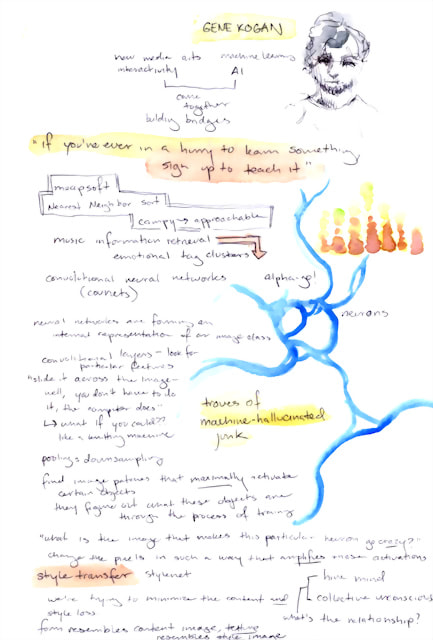 GENE KOGAN
new media arts machine learning
interactivity AI
come
together
building bridges
"if you've ever in a hurry to learn something,
sign up to teach it"
mapsoft
Nearest Neighbor sort
campy → approachable
music information retrieval
emotional tag clusters
convolutional neural networks alpha-go!
(convnets)
neurons
neural networks are forming an
internal representation of an image class
convolutional layers - look for
particular features
"slide it across the image -
well, you don't have to do
it, the computer does -
↳ what if you could??
like a knitting machine
troves of
machine-hallucinated
junk
pooling = downsampling
find image patches that maximally activate
certain objects
they figure out what these objects are
through the process of training
"what is the image that makes this particular neuron go crazy?"
change the pixels in such a way that amplifies those activations
style transfer stylenet
hive mind
collective unconscious
what's the relationship?
we're trying to minimize the content and
style loss
form resembles content image, texture
resembles style image